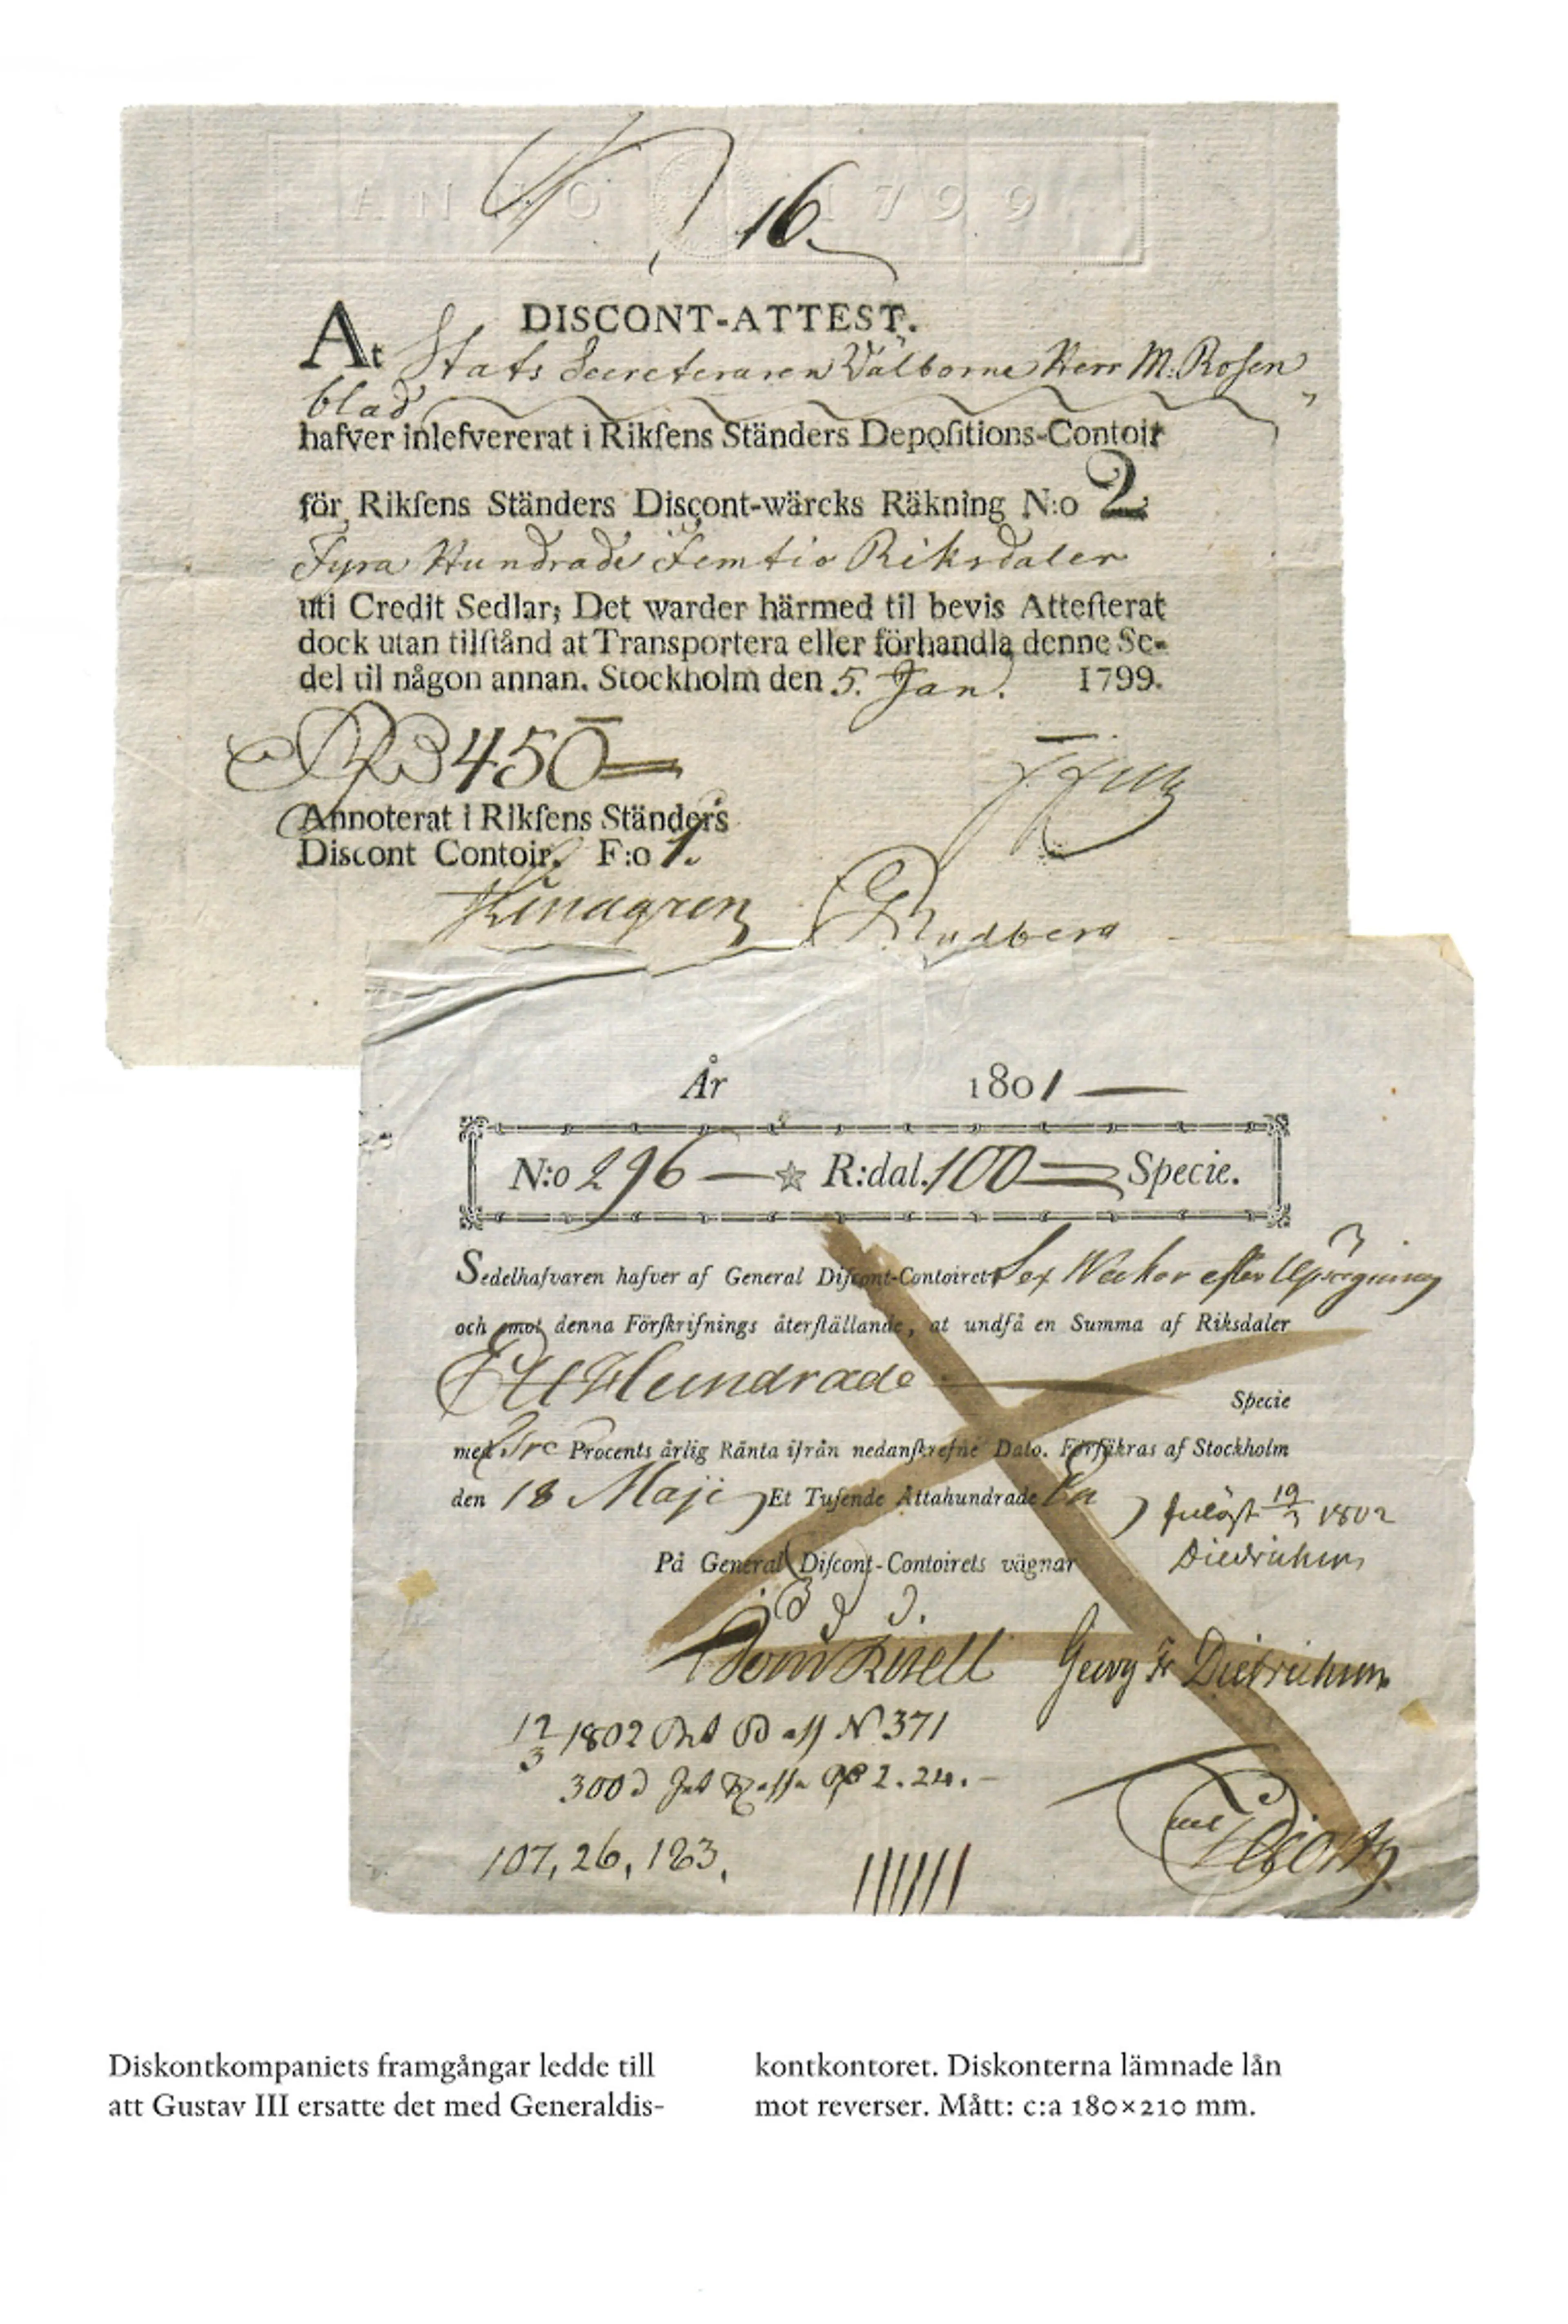 ANNO 1799
16.
DISCONT-ATTEST.
At Stats Secreteraren Välborne Herr M. Rosen
blad
hafver inlefvererat i Rikſens Ständers Depoſitions-Contoir
för Rikſens Ständers Discont-wärcks Räkning N:o 2
Fyra Hundrade Femtio Riksdaler
uti Credit Sedlar; Det warder härmed til bevis Atteſterat
dock utan tilſtånd at Transportera eller förhandla denne Se-
del til någon annan. Stockholm den 5. Jan. 1799.
450
Annoterat i Rikſens Ständers
Discont Contoir. F:o 1.
Rudberg
År 1801
N:o 296 — ☆ R:dal. 100 Specie.
Sedelhafvaren hafver af General Diſcont-Contoiret Sex Weckor efter Upsägning
och mot denna Förſkrifnings återſtällande, at undfå en Summa af Riksdaler
Ett Hundrade
Specie
med Tre Procents årlig Ränta ifrån nedanſkrefne Dato. Förſäkras af Stockholm
den 18 Maji Et Tuſende Åttahundrade En
inlöst 19/3 1802
Diedrichsen
På General Diſcont-Contoirets vägnar
Georg Fr Diedrichsen
12/3 1802 N 371
300 2.24.-
107, 26, 183.
Diskontkompaniets framgångar ledde till
att Gustav III ersatte det med Generaldis-
kontkontoret. Diskonterna lämnade lån
mot reverser. Mått: c:a 180×210 mm.